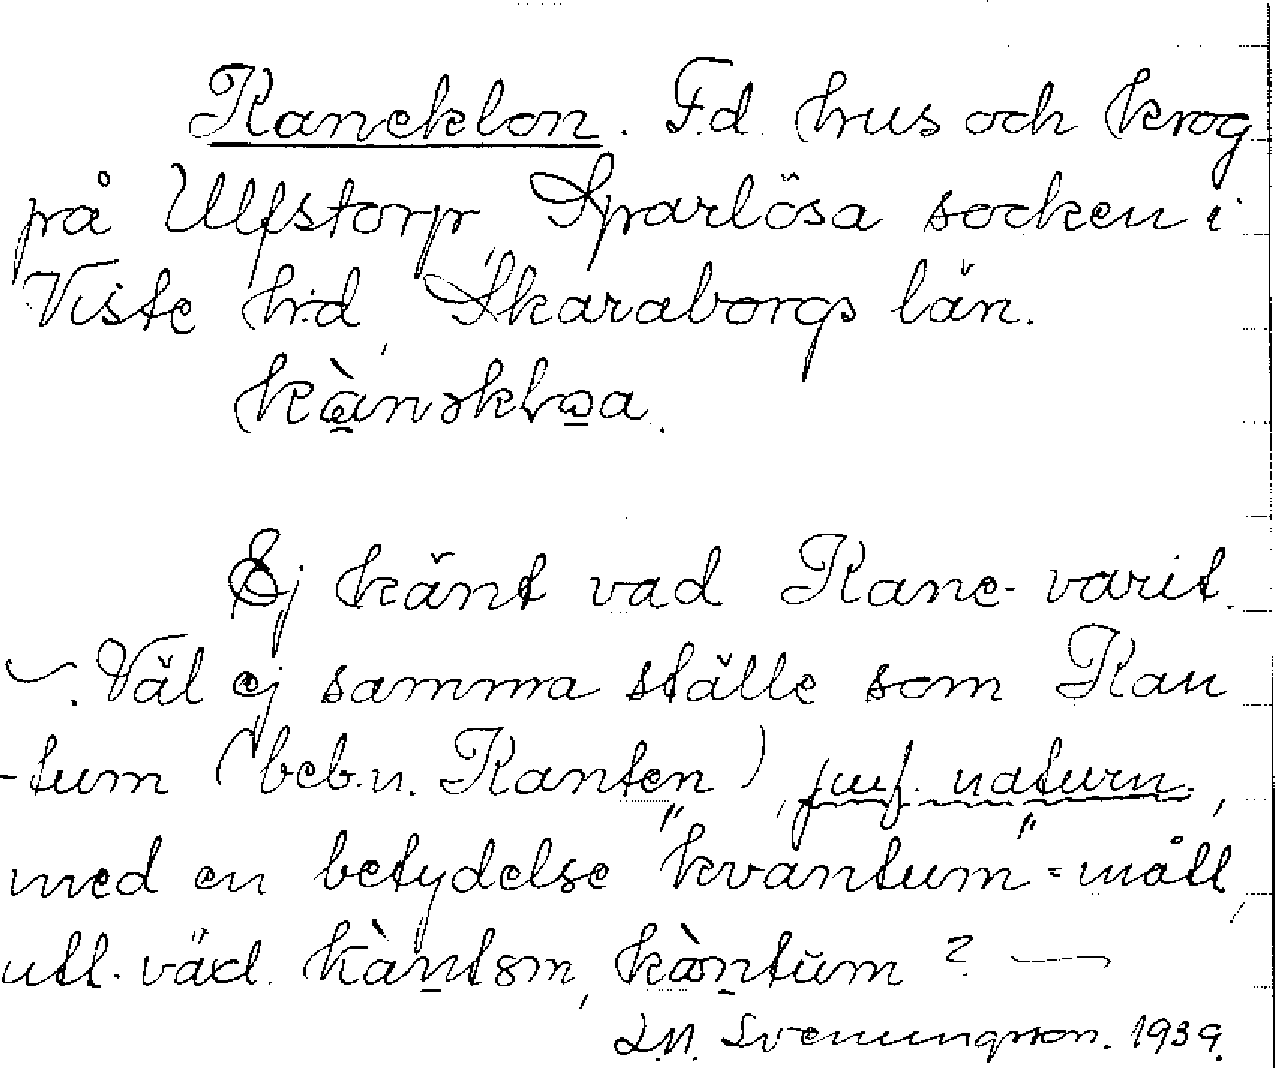 Kaneklon. F.d. hus och krog
på Ulfstorp, Sparlösa socken i
Viste hd, Skaraborgs län.
kànəkloa.
Ej känt vad Kane- varit.
Väl ej samma ställe som Kan
-tum (beb.n. Kanten), jmf. naturn.,
med en betydelse "kvantum" = mått,
utt. väd. kàntəm, kàntum ? —
L.M. Svenungsson. 1939.